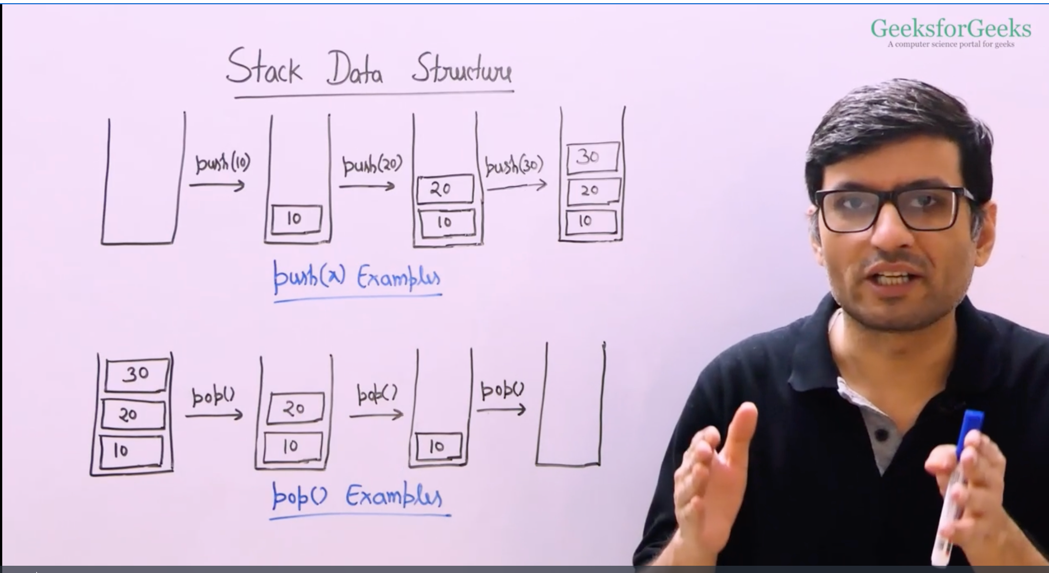 GeeksforGeeks
A computer science portal for geeks
Stack Data Structure
push(10)
push(20)
push(30)
10
20
10
30
20
10
push(x) Examples
30
20
10
pop()
20
10
pop()
10
pop()
pop() Examples